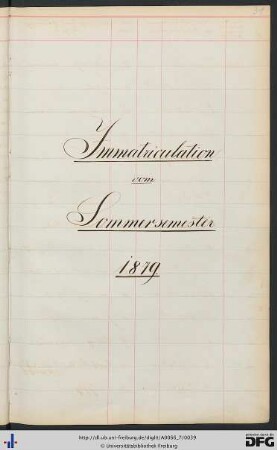 Immatriculation
vom
Sommersemester
1879
http://dl.ub.uni-freiburg.de/diglit/A0066_7/0039
© Universitätsbibliothek Freiburg
DFG